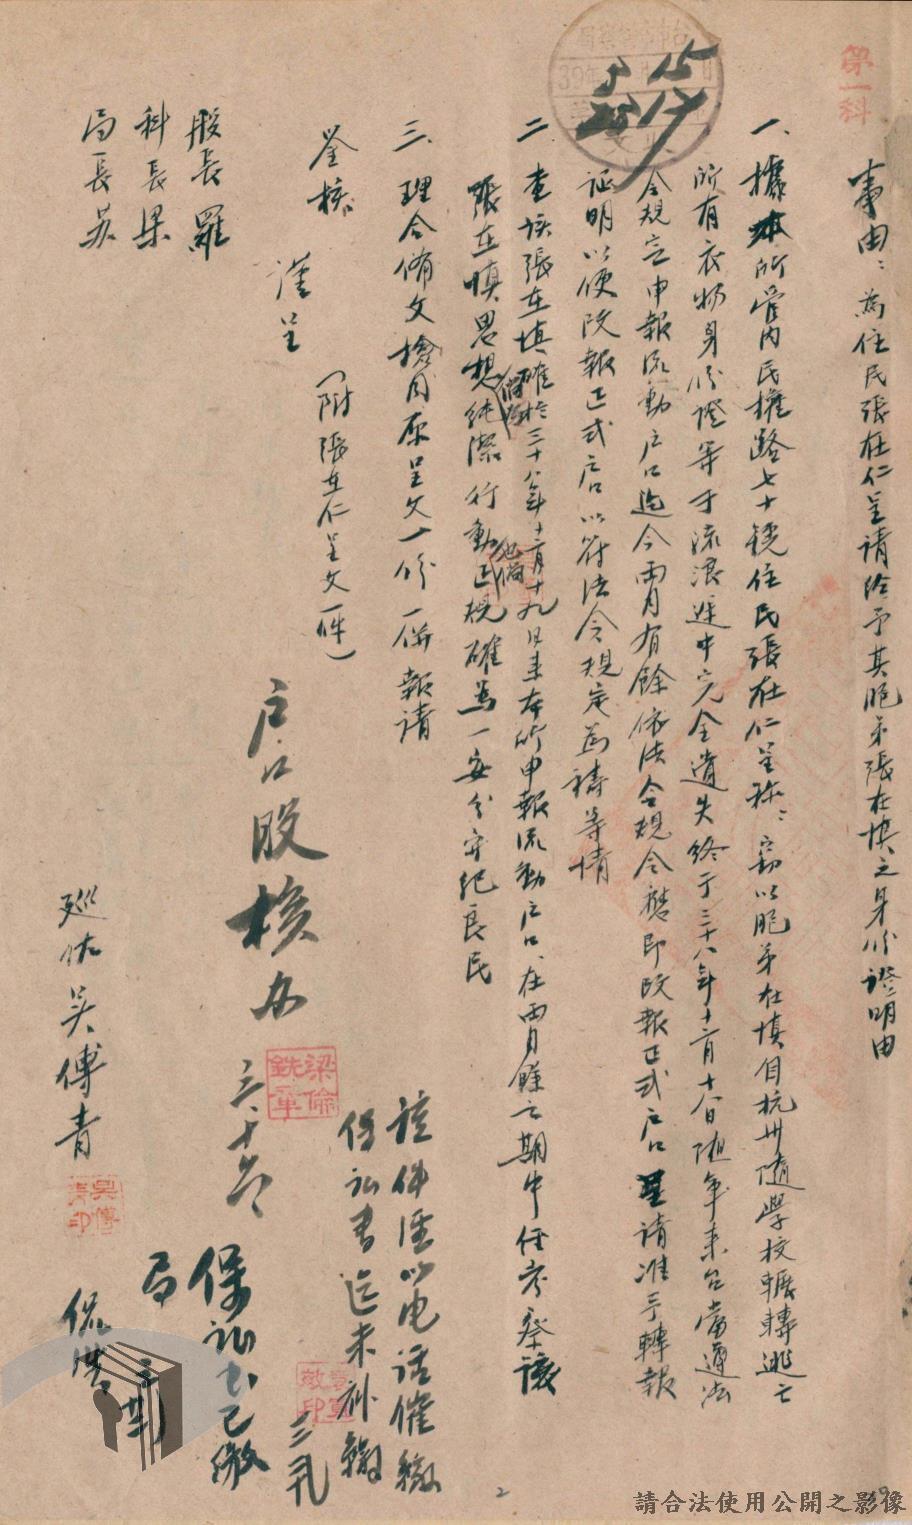 第一科
事由：為住民張在仁呈請給予其胞弟張在慎之身份證明由
一、據本所管內民權路七十號住民張在仁呈称：竊以胞弟在慎自杭州隨學校輾轉逃亡
所有衣物身份證等于流浪途中完全遺失終于三十八年十二月十八日隨軍來台當遵法
令規定申報流動户口迄今兩月有餘依法令規令應即改報正式户口呈請准予轉報
証明以便改報正式户口以符法令規定為禱等情
二、查該張在慎確於三十八年十二月十九日來本所申報流動户口、在兩月餘之期中經考察該
張在慎思想純潔行動正規確為一安分守紀良民
三、理合備文檢同原呈文一份一併報請
鉴核
謹呈
（附張在仁呈文一件）
股長羅
科長梁
局長苏
巡佐吴傳青
吴傳青印
户口股核办
梁倫銑章
該件經以电話催繳
保証書迄未補繳
保証書已繳
2
請合法使用公開之影像